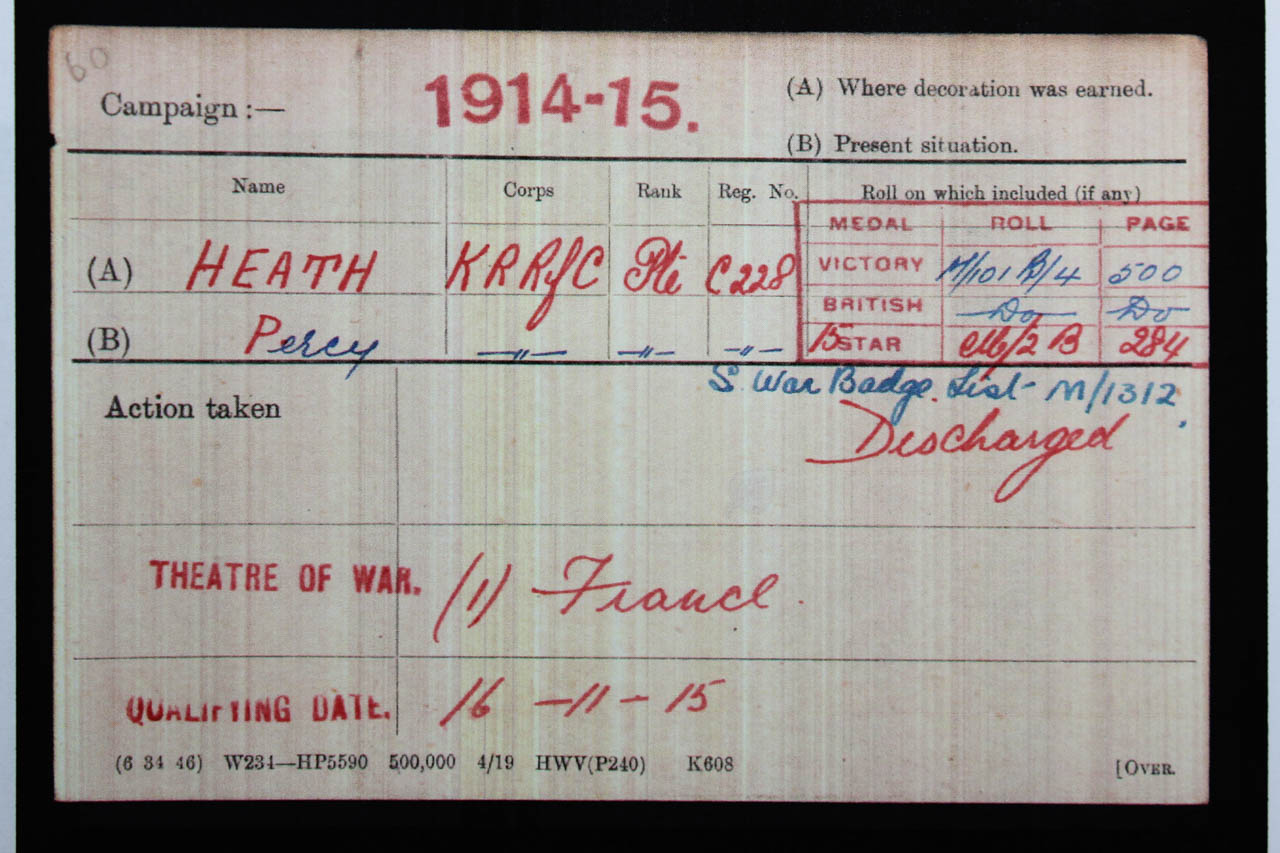 60
Campaign :— 1914-15. (A) Where decoration was earned.
(B) Present situation.
Name Corps Rank Reg. No. Roll on which included (if any)
MEDAL ROLL PAGE
(A) HEATH KRRfC Pte C228 VICTORY M/101 B/4 500
BRITISH Do Do
(B) Percy —"— —"— —"— 15 STAR 284
S. War Badge. List - M/1312.
Action taken Discharged
THEATRE OF WAR. (1) France.
QUALIFYING DATE. 16 -11- 15
(6 34 46) W234—HP5590 500,000 4/19 HWV(P240) K608 [OVER.